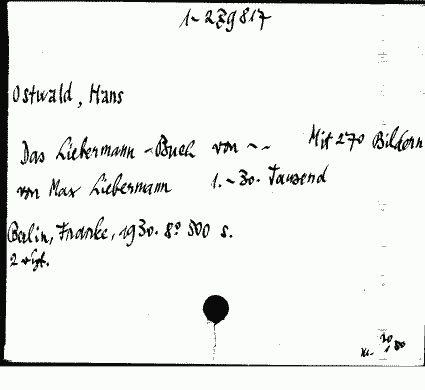 1-239817
Ostwald, Hans
Das Liebermann-Buch von -- Mit 270 Bildern
von Max Liebermann 1.-30. Tausend
Berlin, Franke, 1930. 8° 500 s.